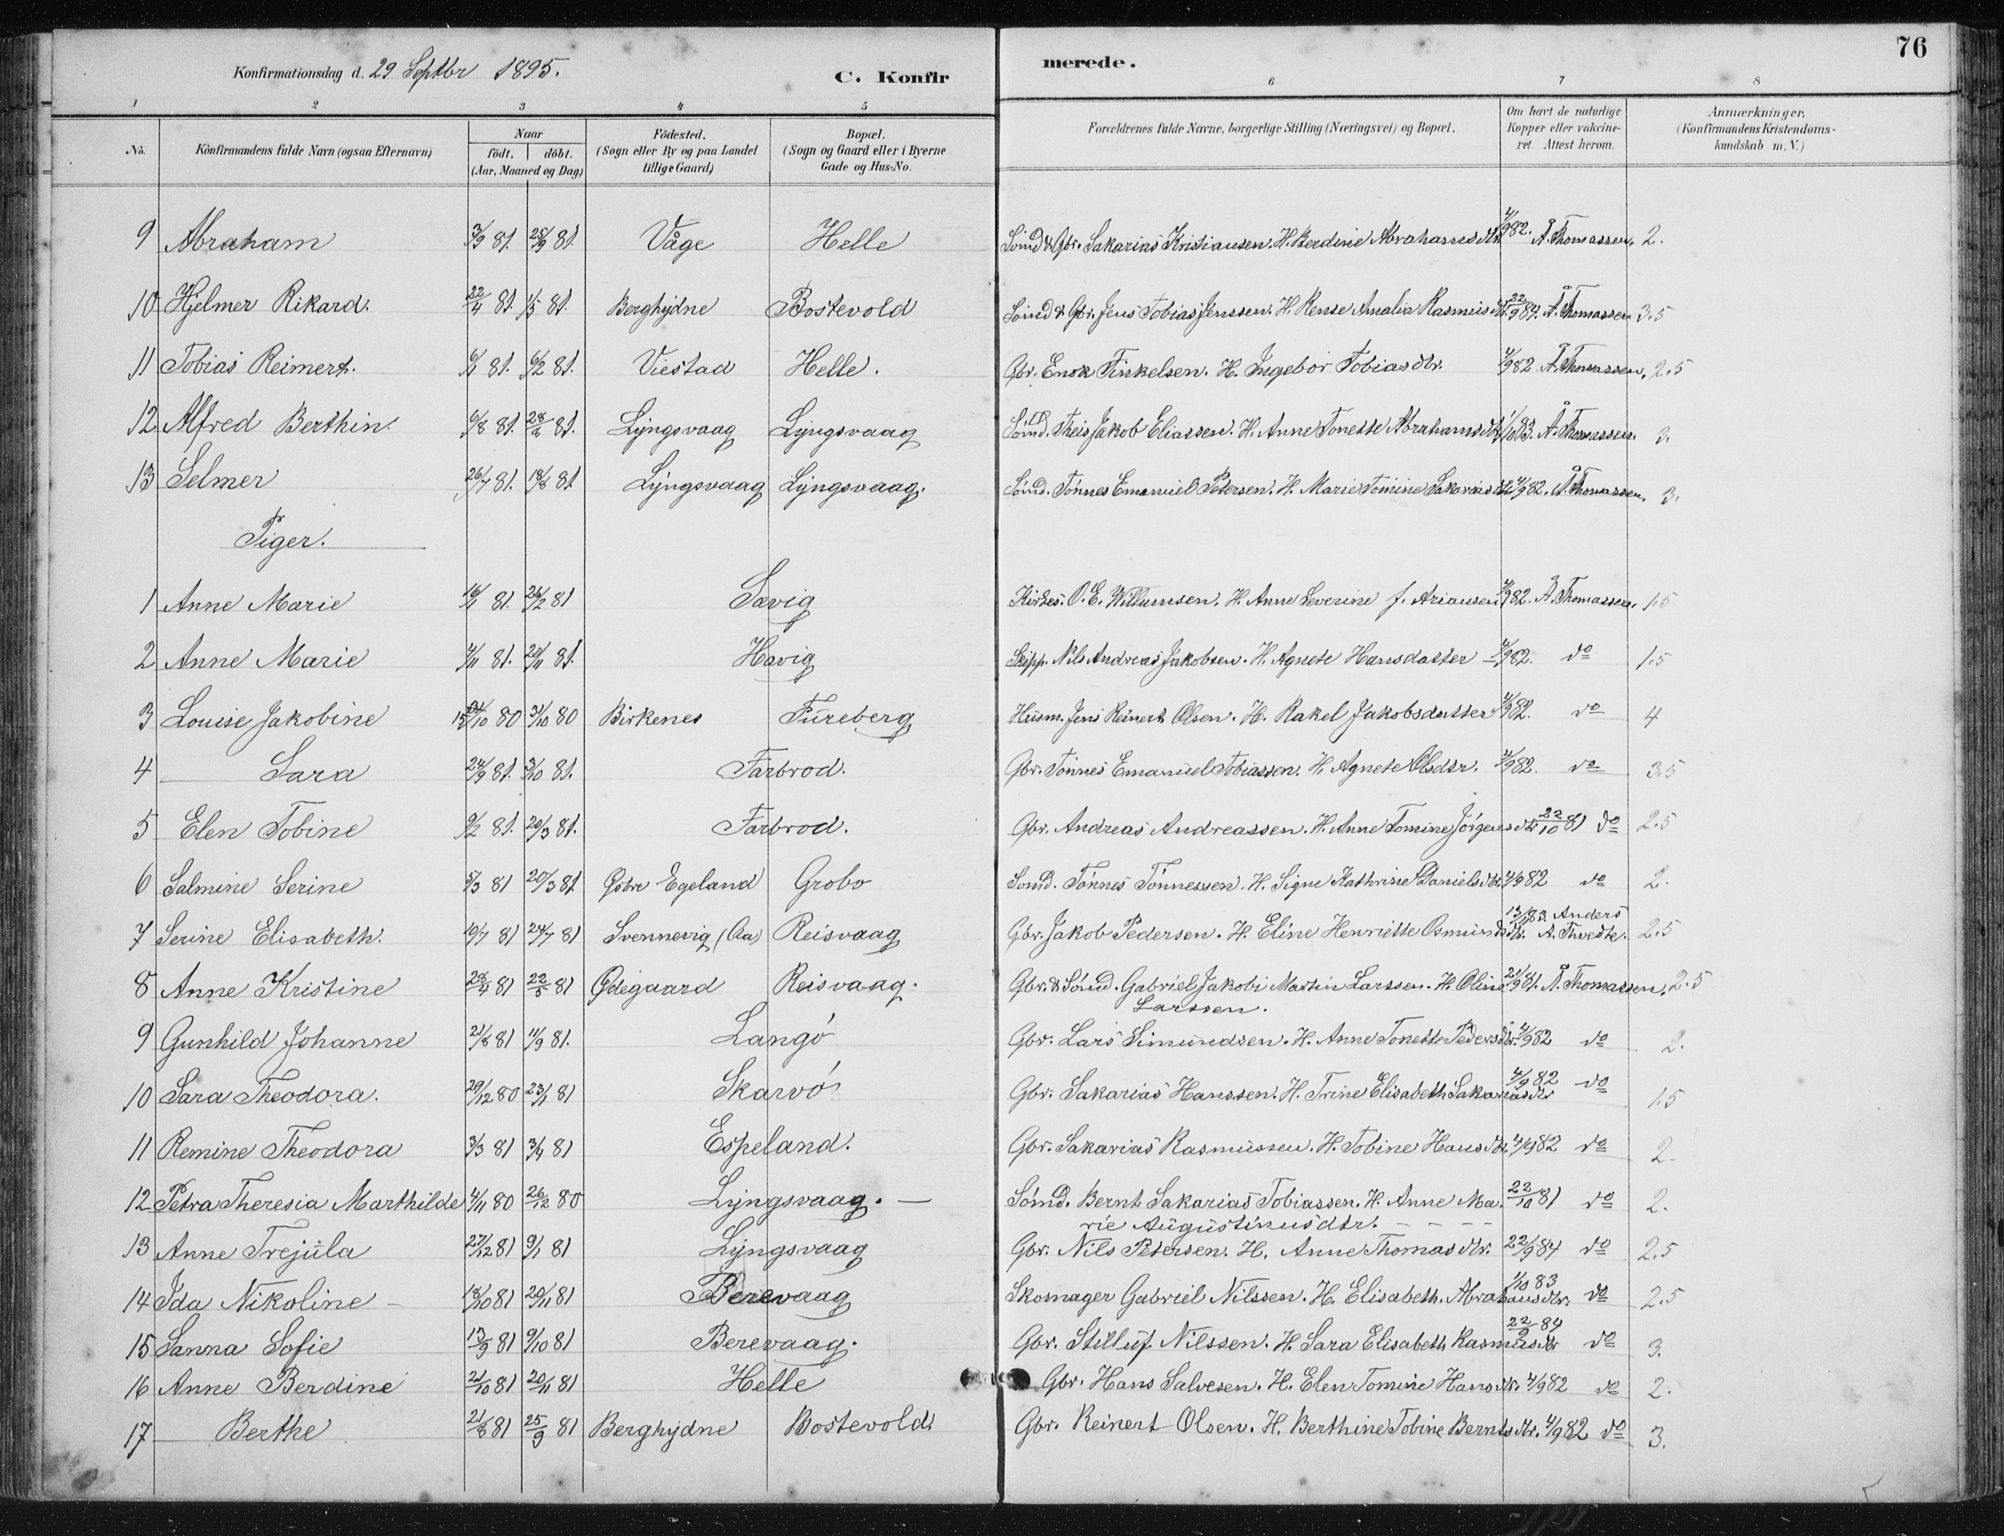 Konfirmationsdag d. 29 Septbr 1895. C. Konfirmerede. 76
1 2 3 4 5 6 7 8
No. Konfirmandens fulde Navn (ogsaa Efternavn) Naar födt. döbt. (Aar, Maaned og Dag) Födested. (Sogn eller By og paa Landet tillige Gaard) Bopæl. (Sogn og Gaard eller i Byerne Gade og Hus-No. Forældrenes fulde Navne, borgerlige Stilling (Næringsvei) og Bopæl. Om havt de naturlige Kopper eller vakcineret. Attest herom. Anmærkninger. (Konfirmandens Kristendomskundskab m.V.)
9 Abraham 3/9 81. 25/9 81. Våge Helle Sömd & Gbr. Sakarias Kristiansen. H. Berdine Abrahamsdtr 4/9 82. Å. Thomassen. 2.
10 Hjelmer Rikard. 22/4 81. 1/5 81. Berghydne Bostevold Sömd & Gbr. Jens Tobias Jenssen. H. Rense Amalia Rasmusdtr. 22/9 84. Å. Thomassen 3.5
11 Tobias Reimert. 6/1 81. 6/2 81. Viestad Helle. Gbr. Enok Finkelsen. H. Ingebor Tobiasdtr. 4/9 82 Å. Thomassen. 2.5
12 Alfred Berthin. 6/8 81. 28/8 81. Lyngsvaag Lyngsvaag Sömd. Theis Jakob Eliassen. H. Anne Tonette Abrahamsdtr 1/10 83. Å. Thomassen. 3.
13 Selmer 26/7 81. 18/8 81. Lyngsvaag Lyngsvaag. Sömd. Tönnes Emanuel Petersen. H. Marie Tomine Sakariasdtr 4/9 82. Å. Thomassen. 3.
Piger.
1 Anne Marie 16/1 81. 26/2 81 Sævig Kirkes. O. E. Willumsen. H. Anne Severine f. Ariansen 4/9 82. Å. Thomassen. 1.5
2 Anne Marie 4/11 81. 20/11 81. Havig Skipp. Nils Andreas Jakobsen. H. Agnete Hansdatter 4/9 82. do 1.5
3 Louise Jakobine 10 80 31/10 80 Birkenes Fureberg Husm. Jens Reinert Olsen. H. Rakel Jakobsdatter 4/9 82. do 4
4 Sara 24/9 81. 3/10 81. Farbrod. Gbr. Tönnes Emanuel Tobiassen. H. Agnete Olsdtr. 4/9 82. do 3.5
5 Elen Tobine 9/2 81. 20/3 81. Farbrod. Gbr. Andreas Andreassen. H. Anne Tomine Jörgensdtr 22/10 81 do 2.5
6 Salmine Serine 5/3 81 20/3 81 Östre Egeland Grobo Sömd. Tönnes Tönnessen. H. Signe Kathrine Danielsdtr. 4/9 82 do 2.
7 Serine Elisabeth. 10/7 81 24/7 81 Svennevig (Oa) Reisvaag Gbr. Jakob Pedersen. H. Eline Henriette Osmundsdtr. 83. Anders A. Thvedte. 2.5
8 Anne Kristine 28/4 81 22/5 81 Ødegaard Reisvaag. Gbr. & Sömd. Gabriel Jakobi Martin Larssen. H. Oline 21/9 81. Å. Thomassen. 2.5
Larssen.
9 Gunhild Johanne 21/8 81 11/9 81. Langö Gbr. Lars Simundsen. H. Anne Tonette Pedersdtr. 4/9 82 do 2.
10 Sara Theodora. 29/12 80 23/1 81 Skarvö Gbr. Sakarias Hanssen. H. Trine Elisabeth Sakariasdtr 4/9 82 do 1.5
11 Remine Theodora 3/3 81 3/4 81 Espeland. Gbr. Sakarias Rasmussen. H. Tobine Hansdtr. 4/9 82 do 2.
12 Petra Theresia Marthilde 4/11 80 26/12 80 Lyngsvaag. — Sömd. Bernt Sakarias Tobiassen. H. Anne Ma. 22/10 81 do 2.
rie Augustinusdtr. - - - -
13 Anne Trejula 27/12 81 9/1 81 Lyngsvaag Gbr. Nils Petersen. H. Anne Thomasdtr. 22/9 84 do 2.5
14 Ida Nikoline 18/10 81 20/11 81 Berevaag Skomager Gabriel Nilssen. H. Elisabeth Abrahamsdtr. 1/10 83 do 2.5
15 Sanna Sofie 17/9 81 9/10 81 Berevaag. Gbr. Stilluf Nilssen. H. Sara Elisabeth Rasmusdtr 22/9 84 do 3.
16 Anne Berdine 21/10 81 20/11 81 Helle Gbr. Hans Salvesen. H. Elen Tomine Hansdtr. 4/9 82 do 2.
17 Berthe 21/8 81 25/9 81 Berghydne Bostevold. Gbr. Reinert Olsen. H. Berthine Tobine Berntsdtr. 4/9 82 do 3.